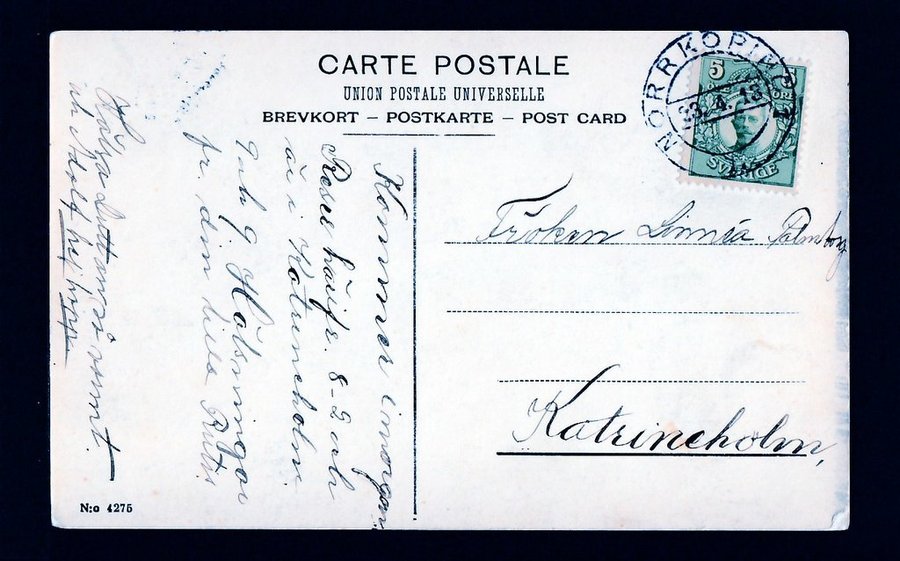 CARTE POSTALE
UNION POSTALE UNIVERSELLE
BREVKORT – POSTKARTE – POST CARD
NORRKÖPING 1
23.4.13
5
ÖRE
SVERIGE
Fröken Linnéa Palmborg
Katrineholm,
Kommer i morgon
Resen härifr. 8-2 och
är i Katrineholm
Hälsningar
fr. din lilla
Hälsa
N:o 4275